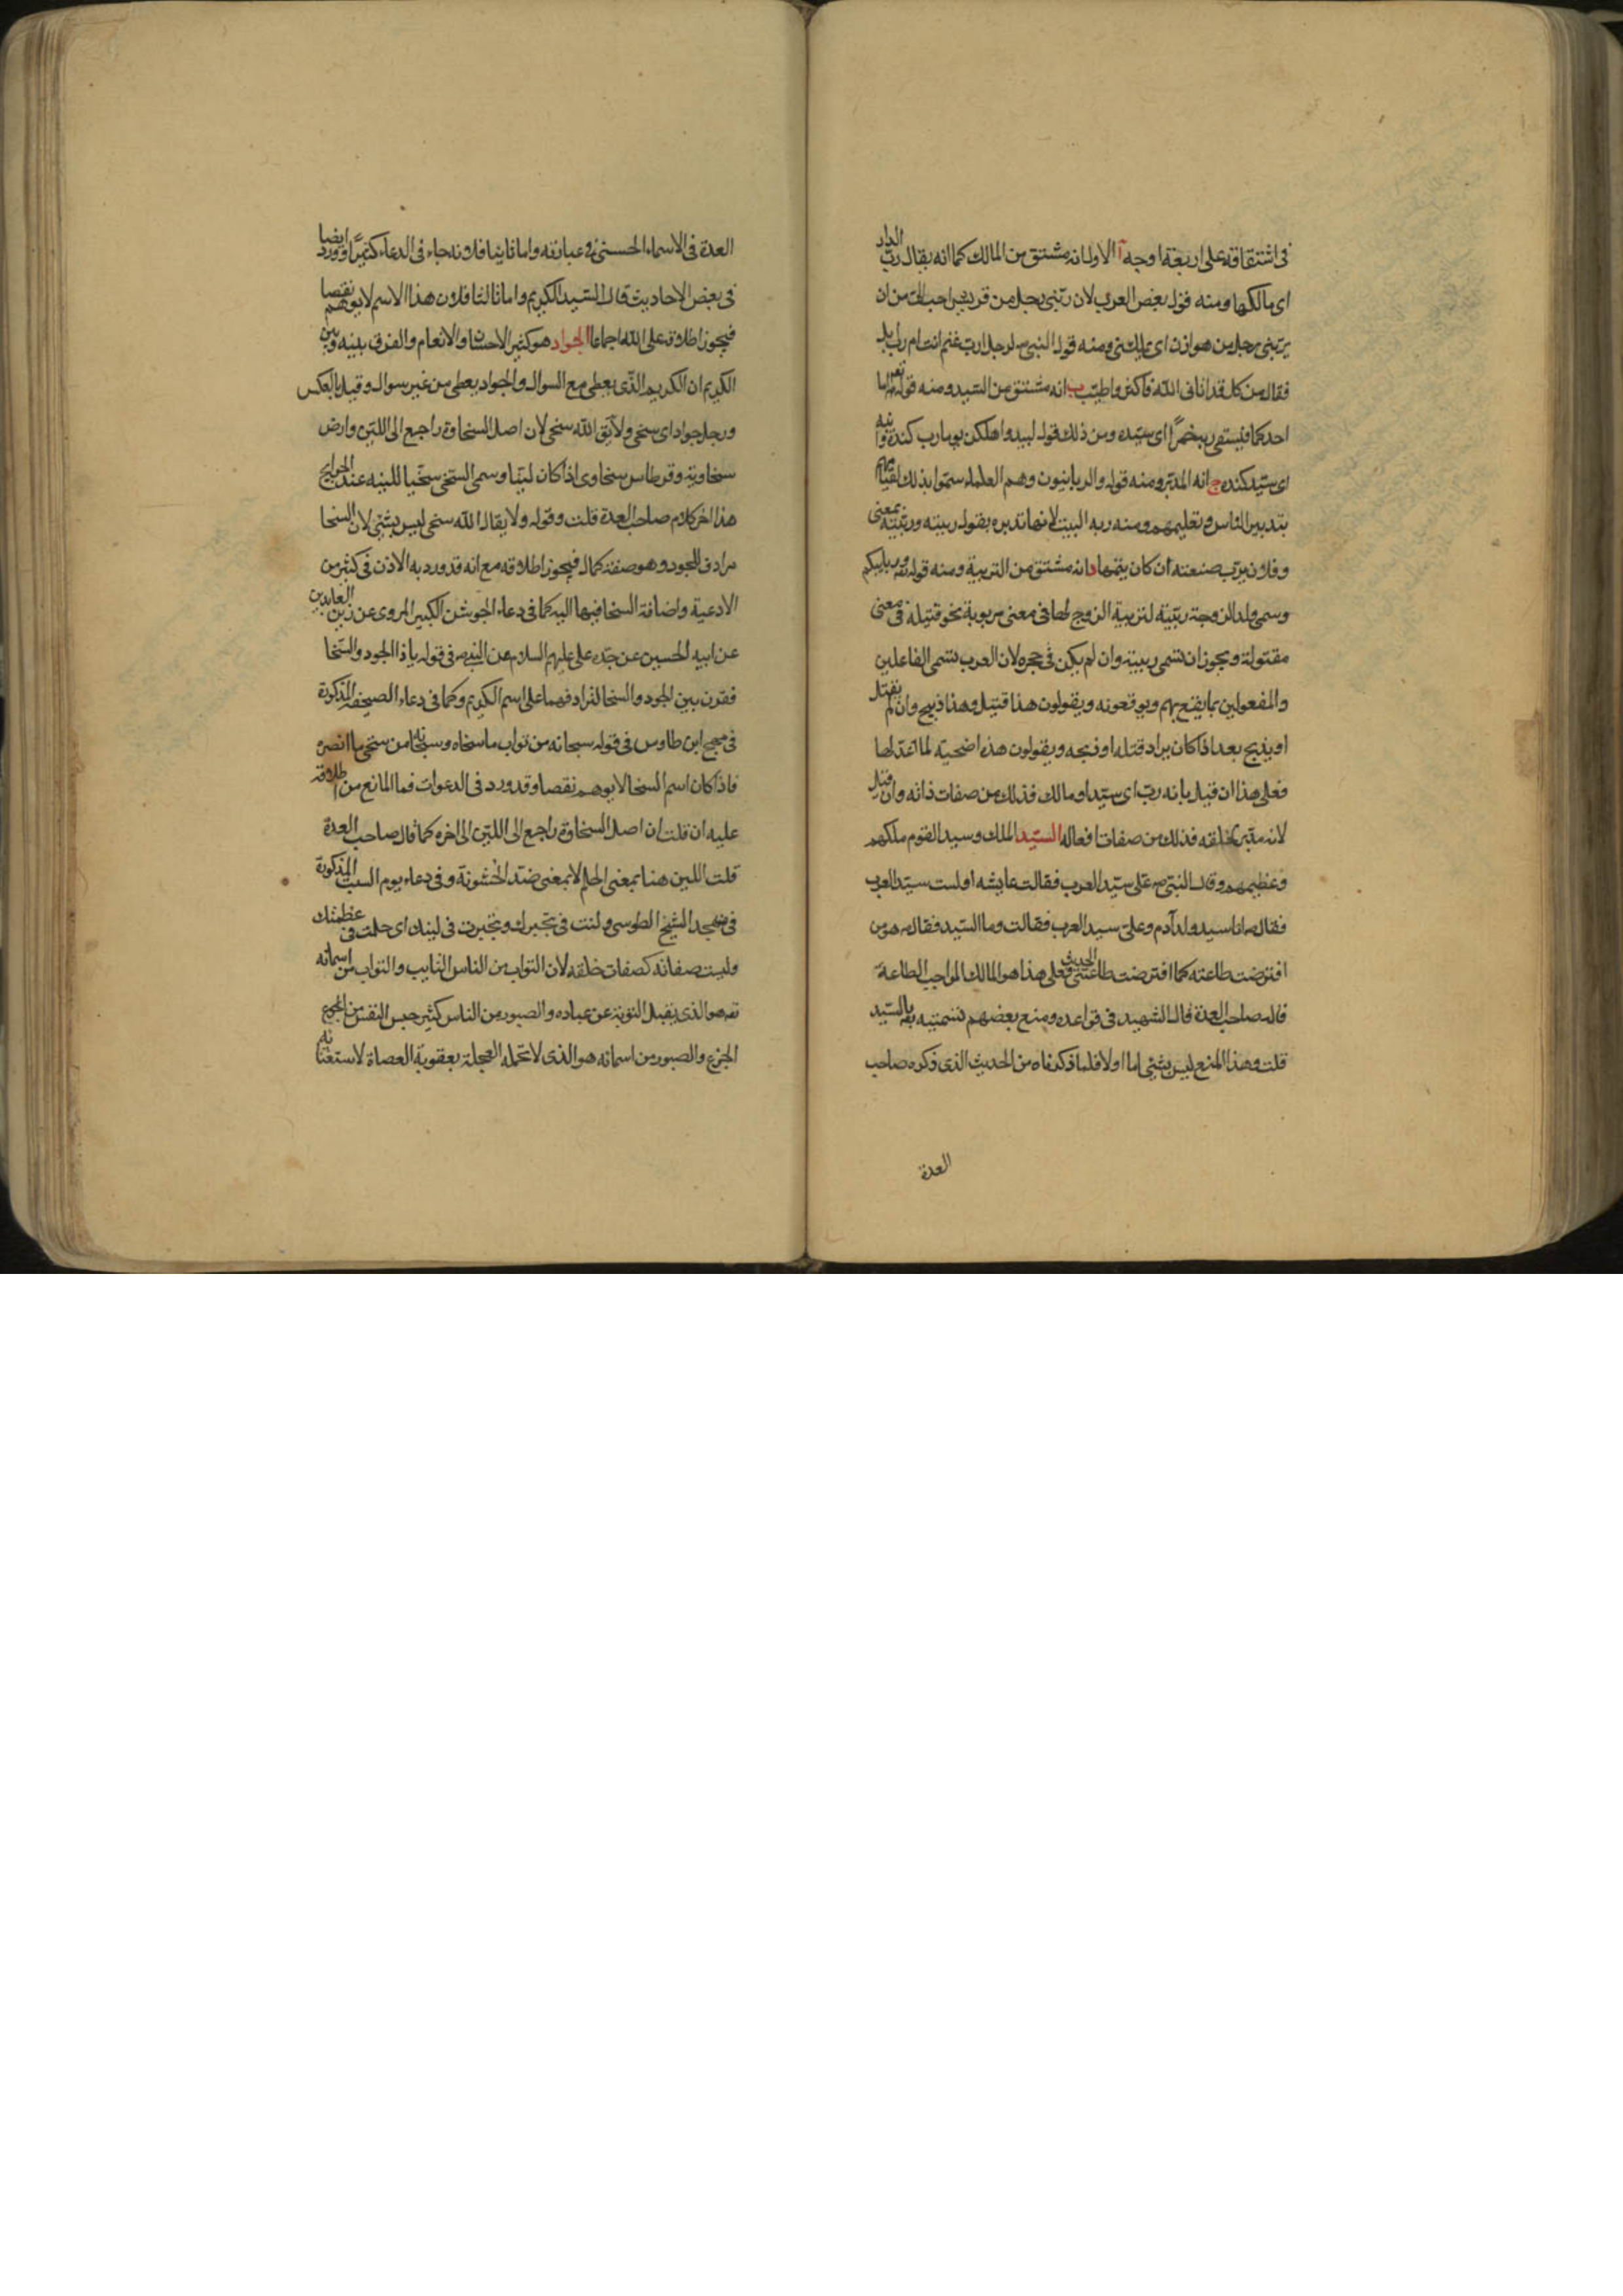 في اشتقاقه على اربعة اوجه آ الاول انه مشتق من المالك كما انه يقال رب الدار
اى مالكها ومنه قول بعض العرب لان ربني رجل من قريش احب الى من ان
يربني رجل من هوازن اى يملكني ومنه قول النبي ص لرجل ارب غنم انت ام رب ابل
فقال من كل قد اتانى الله فاكثر واطيب ب انه مشتق من السيد ومنه قوله تعم اما
احدكما فيسقى ربه خمرًا اى سيده ومن ذلك قول لبيد واهلكن يوما رب كندة وابنه
اى سيد كنده ج انه المدبر ومنه قوله والربانيون وهم العلماء سموا بذلك لقيامهم
بتدبير الناس وتعليمهم ومنه ربه البيت لانها تدبره يقول ربيته وربّبته بمعنى
وفلان يرب صنعته ان كان يتمها د انه مشتق من التربية ومنه قوله تعم وربايبكم
وسمى ولد الزوجة ربيبة لتربية الزوج لها فى معنى مربوبة نحو قتيلة فى معنى
مقتولة ويجوز ان تسمى ربيبة وان لم يكن فى حجره لان العرب تسمى الفاعلين
والمفعولين بما يقع بهم ويوقعونه ويقولون هذا قتيل وهذا ذبيح وان لم يقتل
او يذبح بعد اذا كان يراد قتله او ذبحه ويقولون هذه اضحية لما اعد لها
فعلى هذا ان قيل بانه رب اى سيد او مالك فذلك من صفات ذاته وان قيل
لانه مدبر لخلقه فذلك من صفات افعاله السيد الملك وسيد القوم ملكهم
وعظيمهم وقال النبي ص على سيد العرب فقالت عايشه اولست سيد العرب
فقال ص انا سيد ولد آدم وعلى سيد العرب فقالت وما السيد فقال ص هو من
افترضت طاعته كما افترضت طاعتى الحديث فعلى هذا هو المالك الواجب الطاعة
قاله صاحب العدة قال الشهيد فى قواعده ومنع بعضهم تسميته تع بالسيد
قلت وهذا المنع ليس بشئ اما اولا فلما ذكرناه من الحديث الذى ذكره صاحب
العدة
العدة فى الاسماء الحسنى فى عبارته واما ثانيا فلانه جاء فى الدعاء كثيرًا وورد ايضا
فى بعض الاحاديث قال السيد الكريم واما ثالثا فلان هذا الاسم لا يوهم نقصا
فيجوز اطلاقه على الله اجماعا الجواد هو كثير الاحسان والانعام والفرق بينه وبين
الكريم ان الكريم الذى يعطى مع السوال والجواد يعطى من غير سوال وقيل بالعكس
ورجل جواد اى سخى ولا يق الله سخى لان اصل السخاوة راجع الى اللين وارض
سخاوية وقرطاس سخاوى اذا كان لينا وسمى السخى سخيا للينه عند الحوايج
هذا اخر كلام صاحب العدة قلت وقوله ولا يقال الله سخى ليس بشئ لان السخا
مرادف للجود وهو صفة كمال فيجوز اطلاقه مع انه قد ورد به الاذن فى كثير من
الادعية واضافة السخا فيها اليه كما فى دعاء الجوشن الكبير المروى عن زين العابدين
عن ابيه الحسين عن جده على عليهم السلام عن النبي ص فى قوله يا ذا الجود والسخا
فقرن بين الجود والسخا لترادفهما على اسم الكريم وكما فى دعاء الصحيفة المذكورة
فى مهج ابن طاوس فى قوله سبحانه من تواب ما سخاه وسبحانه من سخى ما انصره
فاذا كان اسم السخا لا يوهم نقصا وقد ورد فى الدعوات فما المانع من اطلاقه
عليه ان قلت ان اصل السخاوة راجع الى اللين الى اخره كما قال صاحب العدة
قلت اللين هنا بمعنى الحلم لا بمعنى ضد الخشونة وفى دعاء يوم السبت المذكورة
فى متهجد الشيخ الطوسى ولنت فى تجبرك وتجبرت فى لينك اى حلمت فى عظمتك
وليست صفاته كصفات خلقه لان التواب من الناس التايب والتواب من اسمائه
تعم هو الذى يقبل التوبة عن عباده والصبور من الناس كثير حبس النفس من الجزع
الجزع والصبور من اسمائه هو الذى لا تحمله العجلة بعقوبة العصاة لاستغنائه